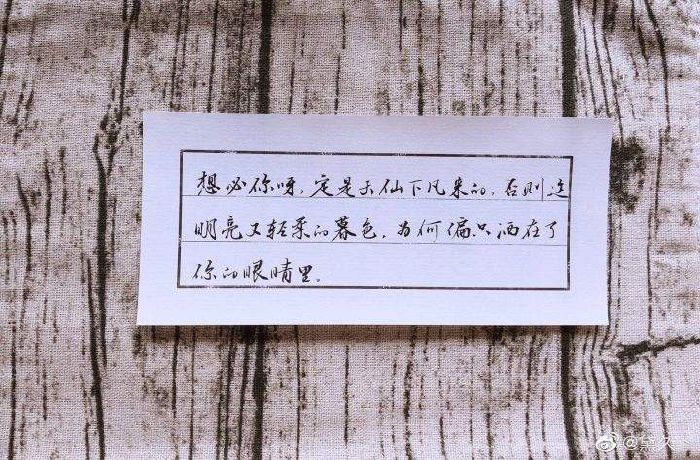 想必你呀，定是天仙下凡来的，否则这
明亮又轻柔的暮色，为何偏只洒在了
你的眼睛里。